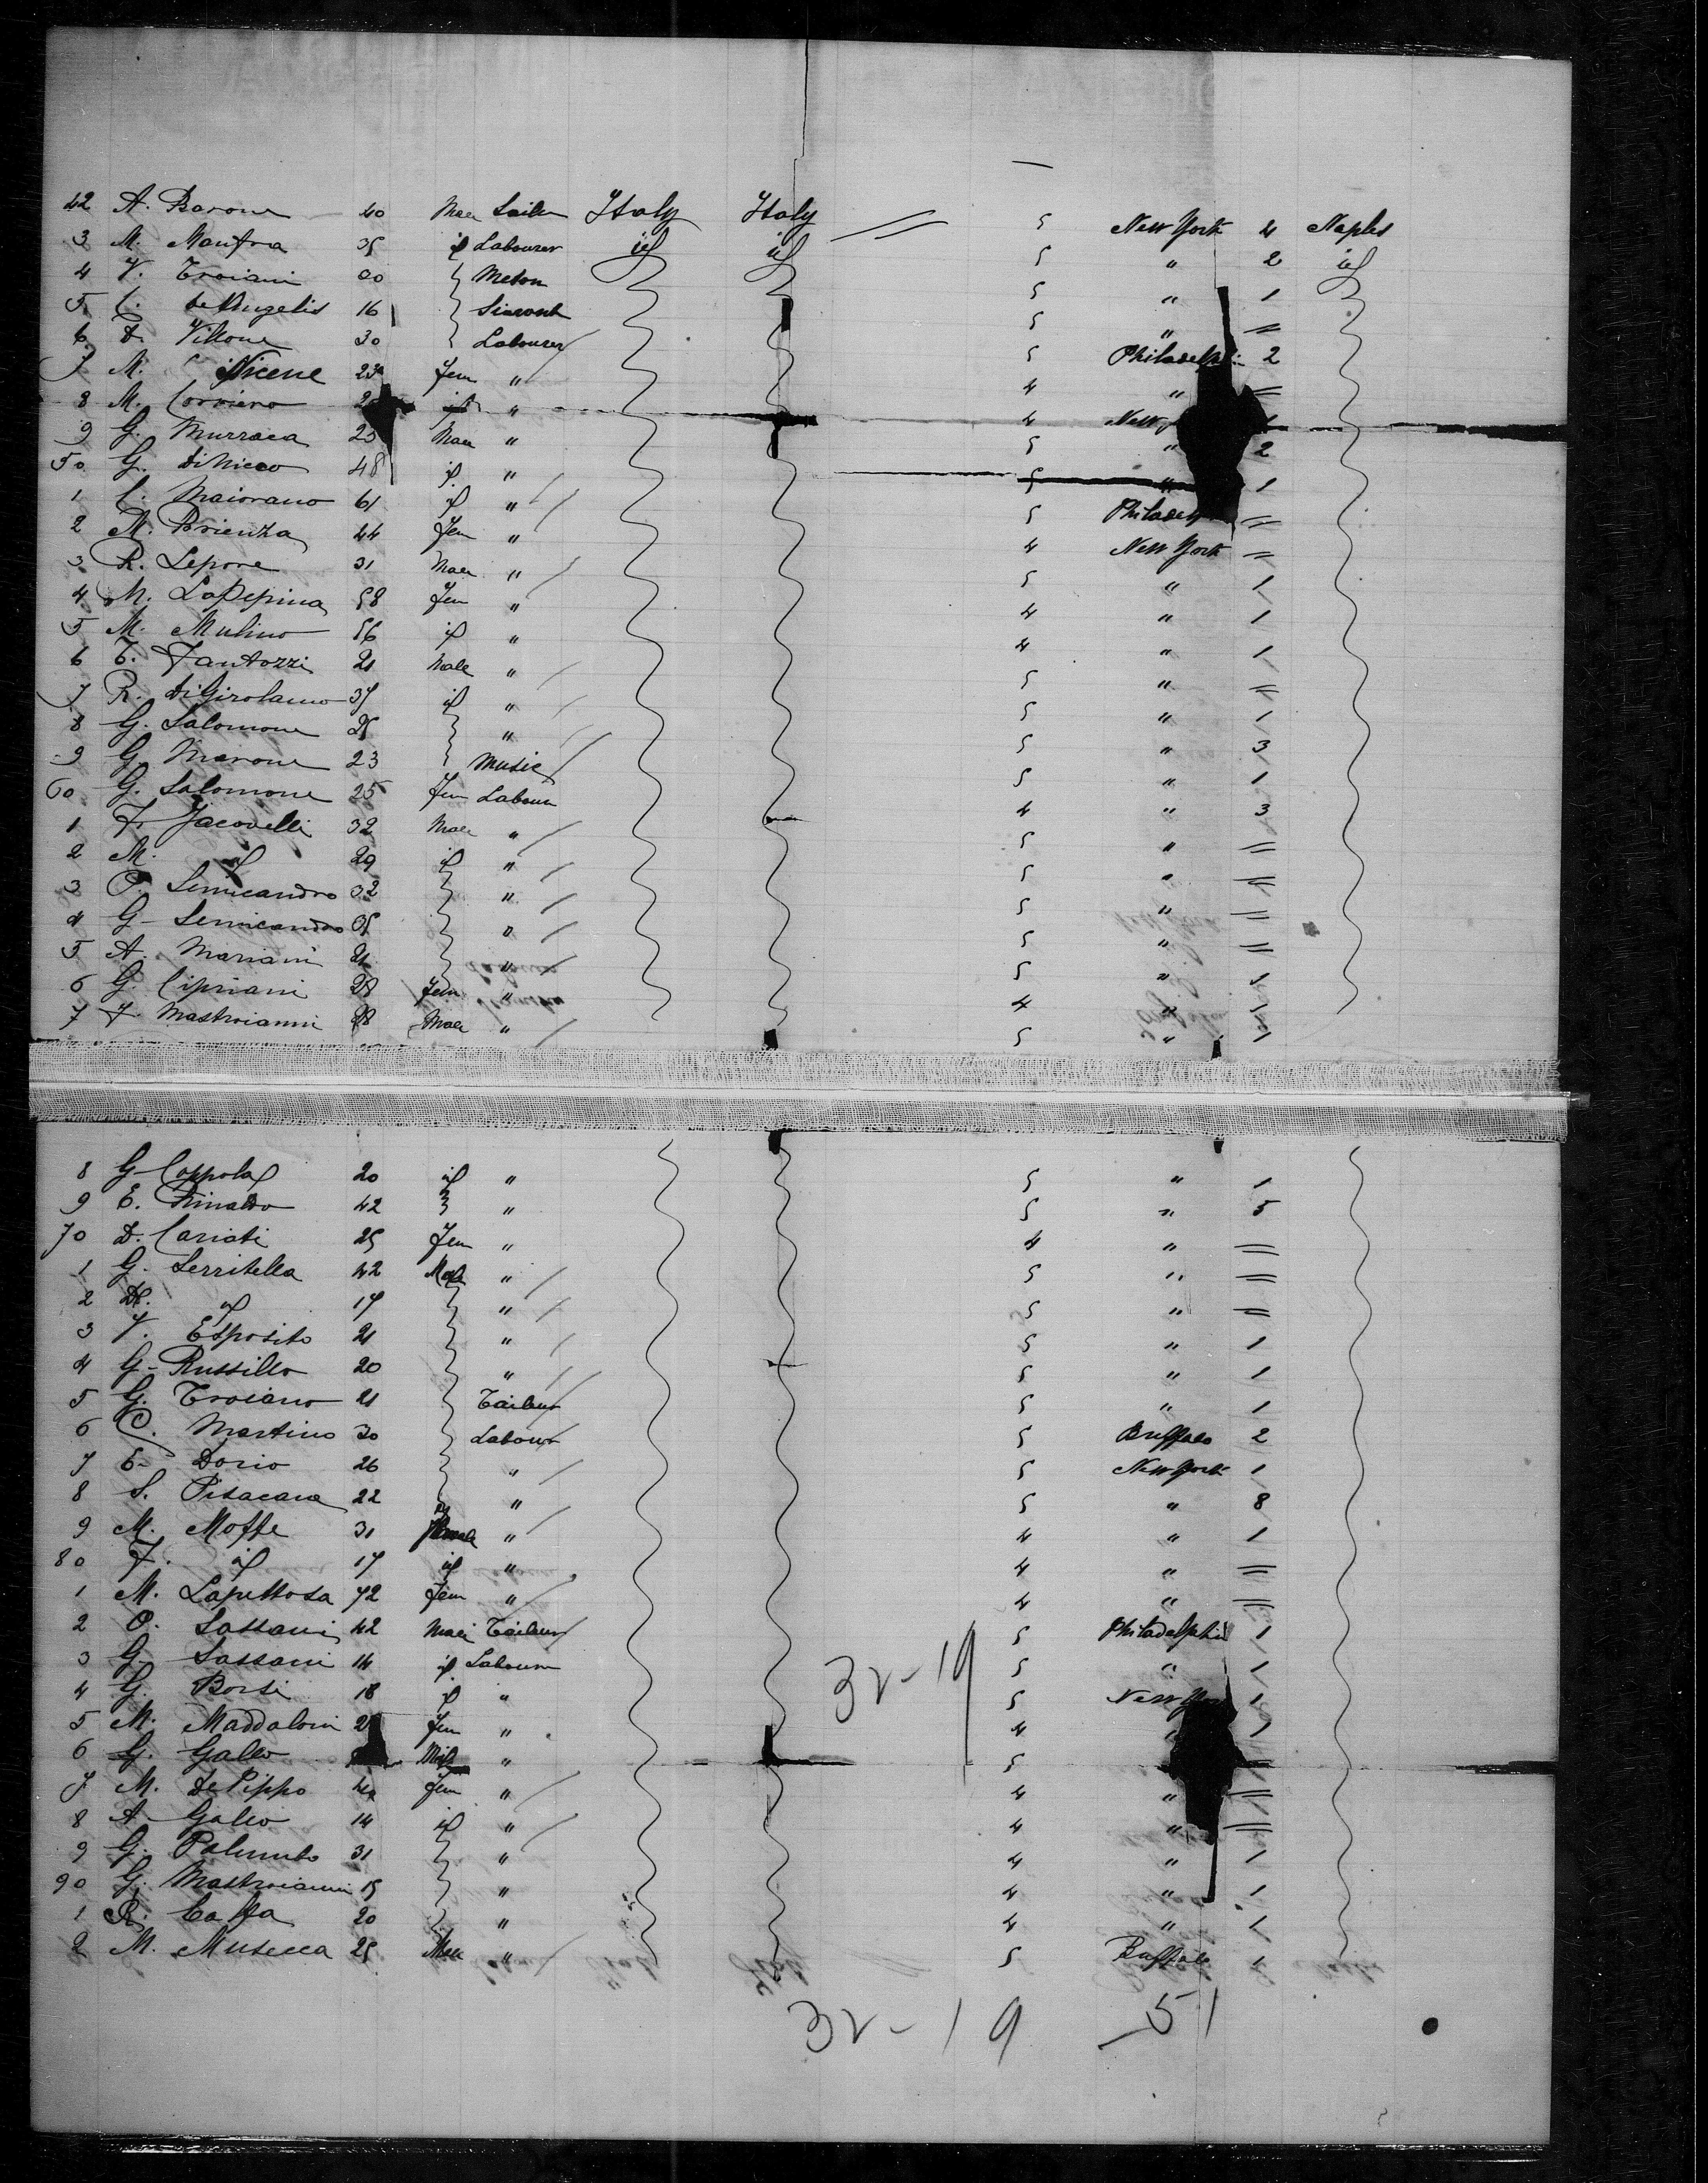 42 A. Barone 40 Male Sailer Italy Italy // 5 New York 4 Naples
3 M. Manfra 35 id Labourer id id 5 " 2 id
4 V. Troiani 20 Meton 5 " 1
5 C. DeAngelis 16 5 " =
6 D. Villone 30 Labourer 5 Philadelphi 2
7 M. Nicene 23 Fem " 4 " =
8 M. Corriero id " 4 New 1
9 G. Murraca 25 Male " 5 " 2
50 G. DiNicco 48 id " 5 " 1
1 C. Maiorano 61 id " 5 Philadelp =
2 M. Brienza 44 Fem " 4 New York =
3 R. Lepore 31 Male " 5 " 1
4 M. LaPepina 58 Fem " 4 " 1
5 M. Mulino 56 id " 4 " 1
6 T. Fantozzi 21 Male " 5 " =
7 R. DiGirolamo 37 id " 5 " 1
8 G. Salomone 25 " 5 " 3
9 G. Marone 23 Music 5 " 1
60 G. Salomone 25 Fem Labour 4 " 3
1 F. Jacovelli 32 Male " 5 " =
2 M. id 29 id " 5 " =
3 P. Semicandro 32 " 5 " =
4 G. Semicandro 35 " 5 " =
5 A. Mariani 21 " 5 " 1
6 G. Cipriani 28 Fem " 4 " 1
7 F. Mastroianni 28 Male " 5 " 1
8 G. Coppola 20 id " 5 " 1
9 E. Rinaldo 42 " 5 " 5
70 D. Cariati 25 Fem " 4 " =
1 G. Serritella 42 Male " 5 " =
2 D. id 17 " 5 " =
3 V. Esposito 21 " 5 " 1
4 G. Russillo 20 " 5 " 1
5 G. Troiano 21 Taileur 5 " 1
6 C. Martino 30 Labour 5 Buffalo 2
7 E. Dorio 26 " 5 New York 1
8 S. Pisacane 22 " 5 " 8
9 M. Moffe 31 " 4 " 1
80 F. id 17 id " 4 " =
1 M. Laputtosa 72 Fem " 4 " =
2 O. Sassani 42 Male Taileur 5 Philadelphia 1
3 G. Sassani 14 id Labour 5 " 1
4 G. Borsi 18 id " 5 New York 1
5 M. Maddaloni Fem " 4 " 1
6 G. Gallo Male " 5 =
7 M. DePippo 40 Fem " 4 " =
8 A. Gallo 14 id " 4 " =
9 G. Palumbo 31 " 4 " 1
90 G. Mastroianni 15 " 4 " 1
1 R. Caffa 20 " 4 " 1
2 M. Musecca 25 Male " 5 Buffalo 1
32-19
32-19 51